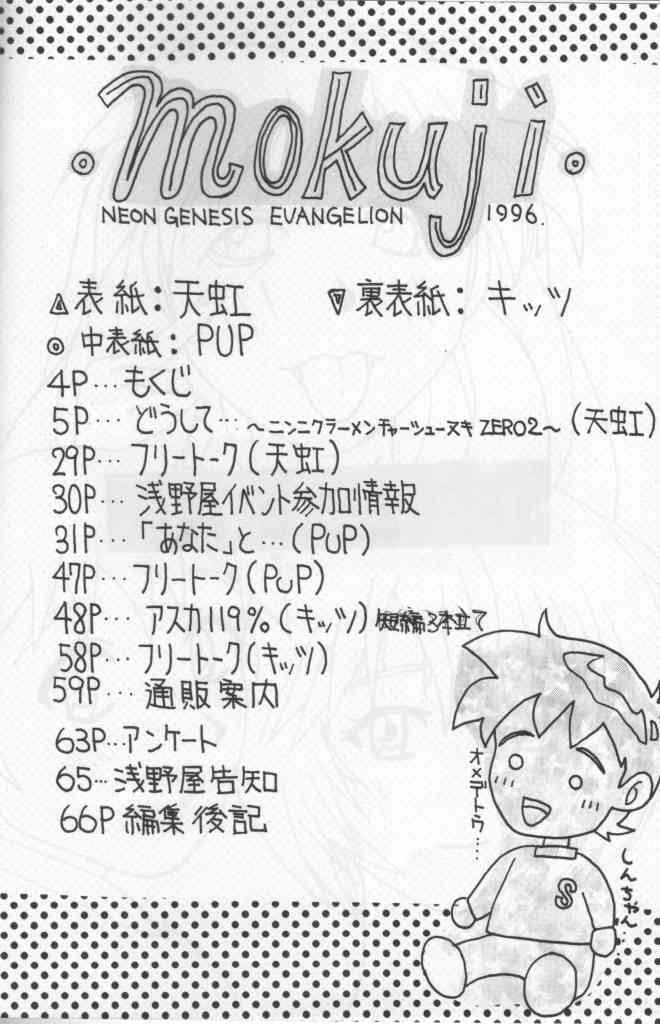 mokuji
NEON GENESIS EVANGELION 1996.
表紙：天虹 裏表紙：キッツ
中表紙：PUP
4P…もくじ
5P…どうして…～ニンニクラーメンチャーシューヌキ ZERO2～（天虹）
29P…フリートーク（天虹）
30P…浅野屋イベント参加情報
31P…「あなた」と…（PUP）
47P…フリートーク（PUP）
48P…アスカ119%（キッツ）短編3本立て
58P…フリートーク（キッツ）
59P…通販案内
63P…アンケート
65…浅野屋告知
66P 編集後記
オメデトウ…
しんちゃん…
S